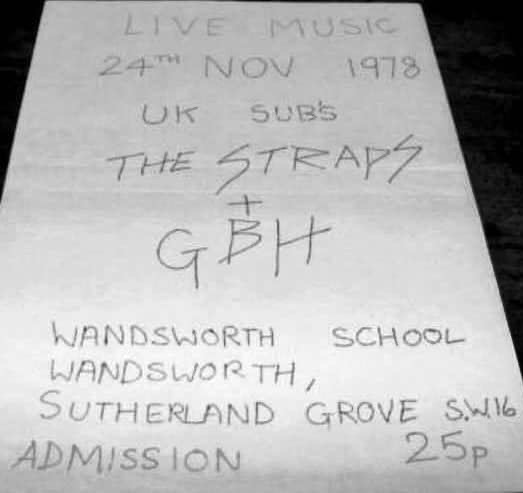 LIVE MUSIC
24TH NOV 1978
UK SUB'S
THE STRAPS
+
GBH
WANDSWORTH SCHOOL
WANDSWORTH,
SUTHERLAND GROVE S.W.16
ADMISSION 25p